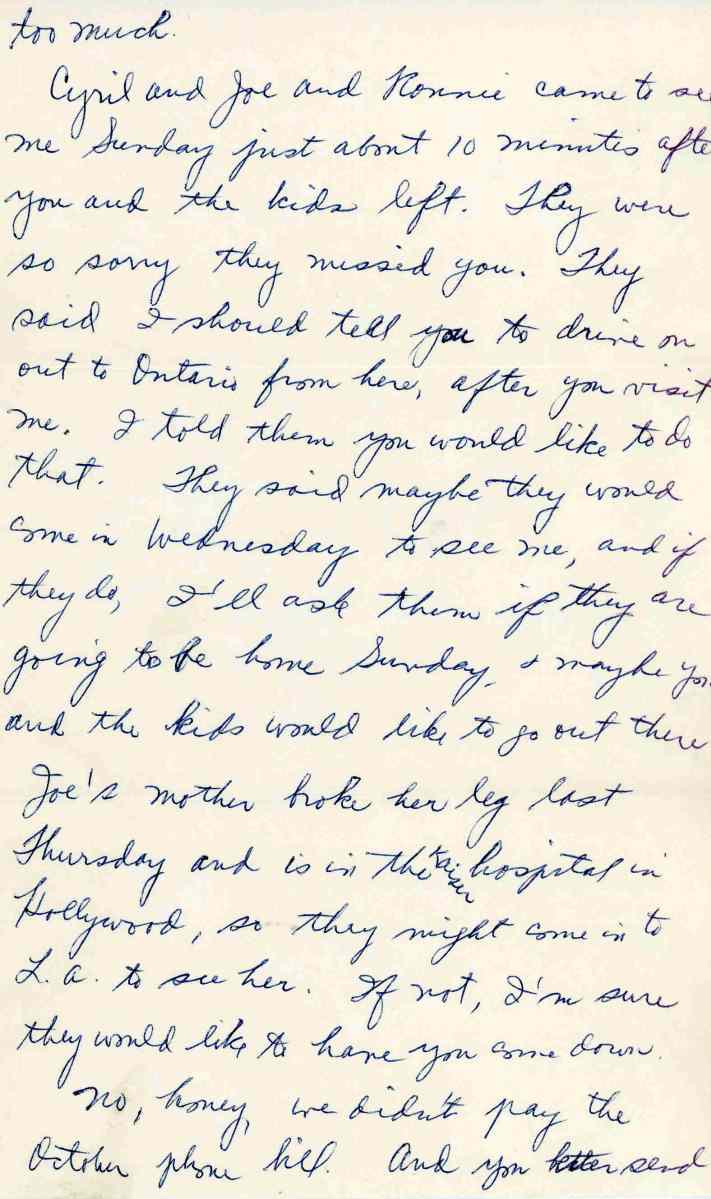 too much.
Cyril and Joe and Ronnie came to see
me Sunday just about 10 minutes afte
you and the kids left. They were
so sorry they missed you. They
said I should tell you to drive on
out to Ontario from here, after you visit
me. I told them you would like to do
that. They said maybe they would
come in Wednesday to see me, and if
they do, I'll ask them if they are
going to be home Sunday, & maybe you
and the kids would like to go out there
Joe's mother broke her leg last
Thursday and is in the Kaiser hospital in
Hollywood, so they might come in to
L.A. to see her. If not, I'm sure
they would like to have you come down.
No, honey, we didn't pay the
October phone bill. And you better send